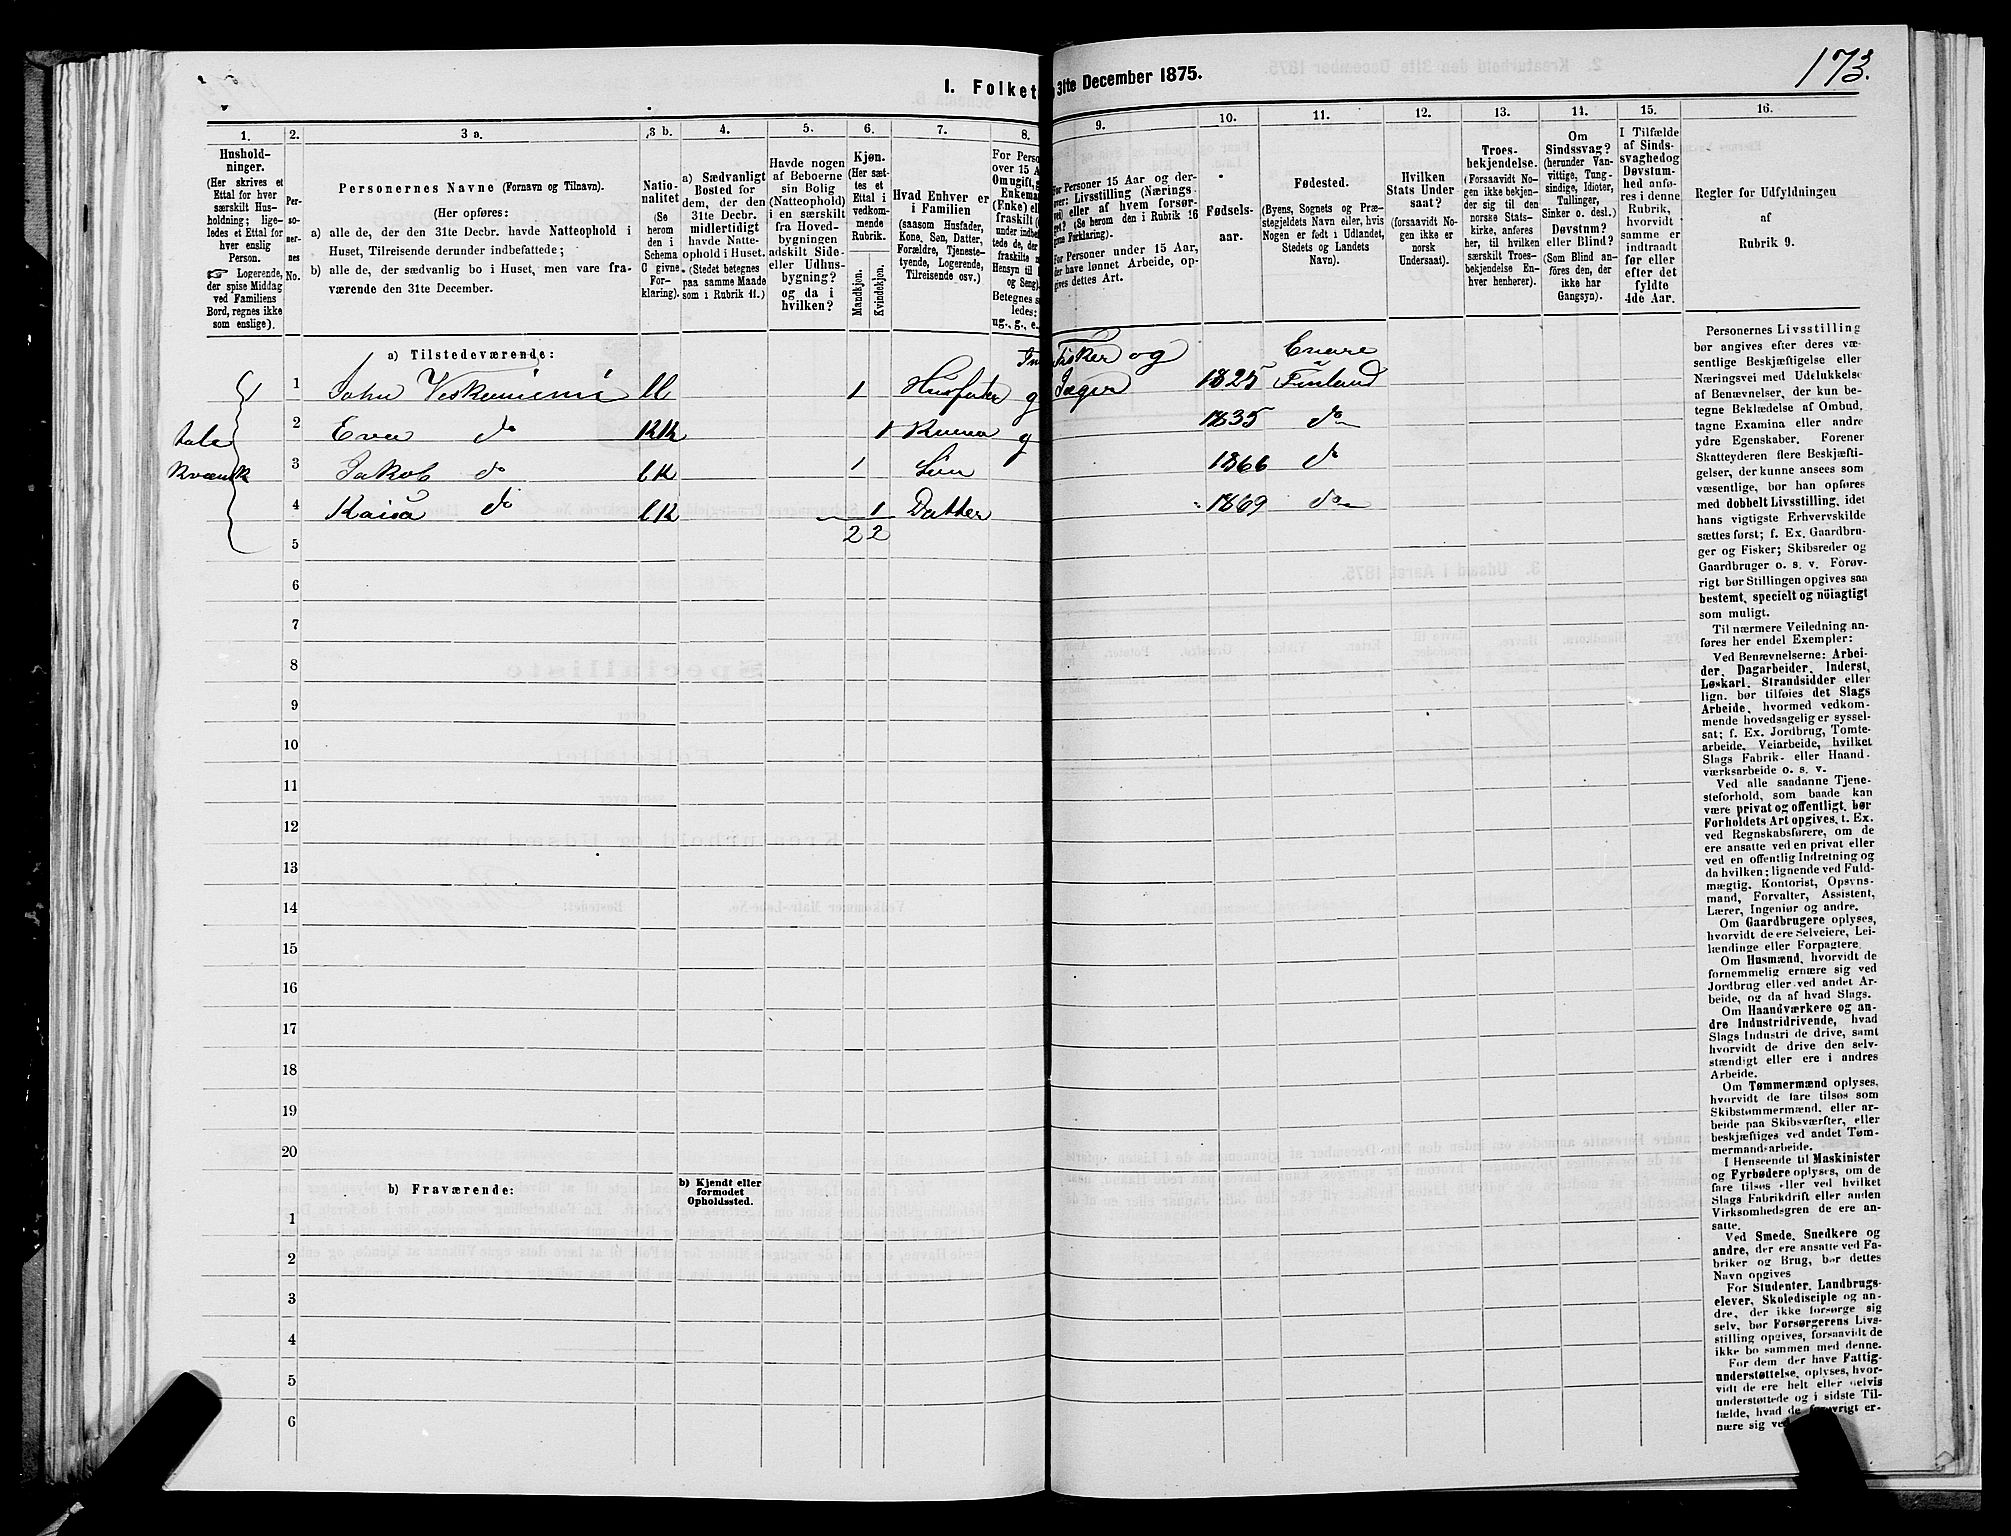 173.
I. Folket
31te December 1875.
1. 2. 3 a. 3 b. 4. 5. 6. 7. 8. 9. 10. 11. 12. 13. 14. 15. 16.
Hushold-
ninger.
(Her skrives et
Ettal for hver
særskilt Hus-
holdning; lige-
ledes et Ettal for
hver enslig
Person.
☞ Logerende,
der spise Middag
ved Familiens
Bord, regnes ikke
som enslige).
Per-
so-
ner-
nes
No.
Personernes Navne (Fornavn og Tilnavn).
(Her opføres:
a) alle de, der den 31te Decbr. havde Natteophold i
Huset, Tilreisende derunder indbefattede;
b) alle de, der sædvanlig bo i Huset, men vare fra-
værende den 31te December.
Natio-
nalitet
(Se
herom
den i
Schema
C givne
For-
klaring).
a) Sædvanligt
Bosted for
dem, der den
31te Decbr.
midlertidigt
havde Natte-
ophold i Huset.
(Stedet betegnes
paa samme Maade
som i Rubrik 11.)
Havde nogen
af Beboerne
sin Bolig
(Natteophold)
i en særskilt
fra Hoved-
bygningen
adskilt Side-
eller Udhus-
bygning?
og da i
hvilken?
Kjøn.
(Her sæt-
tes et
Ettal i
vedkom-
mende
Rubrik.
Mandkjøn.
Kvindekjøn.
Hvad Enhver er
i Familien
(saasom Husfader,
Kone, Søn, Datter,
Forældre, Tjeneste-
tyende, Logerende,
Tilreisende osv.)
For Perso
over 15 A
Om ugift, g
Enkema
(Enke) el
fraskilt (
under indbe
tede de, de
fraskilte
Hensyn til
og Seng).
Betegnes s
ledes:
ug., g., e.,
For Personer 15 Aar og der-
over: Livsstilling (Nærings
vei) eller af hvem forsør-
get? (Se herom den i Rubrik 16
givne Forklaring).
For Personer under 15 Aar,
der have lønnet Arbeide, op-
gives dettes Art.
Fødsels-
aar.
Fødested.
(Byens, Sognets og Præ-
stegjeldets Navn eller, hvis
Nogen er født i Udlandet,
Stedets og Landets
Navn).
Hvilken
Stats Under
saat?
(forsaavidt No-
gen ikke er
norsk
Undersaat).
Troes-
bekjendelse.
(Forsaavidt No-
gen ikke bekjen-
der sig til den
norske Stats-
kirke, anføres
her, til hvilken
særskilt Troes-
bekjendelse En-
hver henhører).
Om
Sindssvag?
(herunder Van-
vittige, Tung-
sindige, Idioter,
Tullinger,
Sinker o. desl.)
Døvstum?
eller Blind?
(Som Blind an-
føres den, der
ikke har
Gangsyn).
I Tilfælde
af Sinds-
svaghed og
Døvstum-
hed anfø-
res i denne
Rubrik,
hvorvidt
samme er
indtraadt
før eller
efter det
fyldte
4de Aar.
Regler for Udfyldningen
af
Rubrik 9.
a) Tilstedeværende:
Fisker og Enare
1 1 John ll 1 Husfader g Jæger 1825 Finland
tale 2 Eva do KK 1 Kona g 1835 do
Kvænsk 3 Jakob do lK 1 Søn 1866 do
4 Kaisa do lK 1 Datter 1869 do
5 2 2
6
7
8
9
10
11
12
13
14
15
16
17
18
19
20
b) Fraværende:
b) Kjendt eller
formodet
Opholdssted.
1
2
3
4
5
6
Personernes Livsstilling
bør angives efter deres væ-
sentlige Beskjæftigelse eller
Næringsvei med Udelukkelse
af Benævnelser, der kun be-
tegne Beklædelse af Ombud,
tagne Examina eller andre
ydre Egenskaber. Forener
Skatteyderen flere Beskjæfti-
gelser, der kunne ansees som
væsentlige, bør han opføres
med dobbelt Livsstilling, idet
hans vigtigste Erhvervskilde
sættes først; f. Ex. Gaardbru-
ger og Fisker; Skibsreder og
Gaardbruger o. s. v. Forøv-
rigt bør Stillingen opgives saa
bestemt, specielt og nöiagtigt
som muligt.
Til nærmere Veiledning an-
føres her endel Exempler:
Ved Benævnelserne: Arbei-
der, Dagarbeider, Inderst,
Løskarl, Strandsidder eller
lign. bør tilføies det Slags
Arbeide, hvormed vedkom-
mende hovedsagelig er syssel-
sat; f. Ex. Jordbrug, Tomte-
arbeide, Veiarbeide, hvilket
Slags Fabrik- eller Haand-
værksarbeide o. s. v.
Ved alle saadanne Tjene-
steforhold, som baade kan
være privat og offentligt, bør
Forholdets Art opgives, t. Ex.
ved Regnskabsførere, om de
ere ansatte ved en privat eller
ved en offentlig Indretning og
da hvilken; lignende ved Fuld-
mægtig, Kontorist, Opsyns-
mand, Forvalter, Assistent,
Lærer, Ingeniør og andre.
Om Gaardbrugere oplyses,
hvorvidt de ere Selveiere, Lei-
lændinge eller Forpagtere.
Om Husmænd, hvorvidt de
fornemmelig ernære sig ved
Jordbrug eller ved andet Ar-
beide, og da af hvad Slags.
Om Haandværkere og an-
dre Industridrivende, hvad
Slags Industri de drive, samt
hvorvidt de drive den selv-
stændigt eller ere i andres
Arbeide.
Om Tømmermænd oplyses,
hvorvidt de fare tilsøs som
Skibstømmermænd, eller ar-
beide paa Skibsværfter, eller
beskjæftiges ved andet Tøm-
mermandsarbeide.
I Henseende til Maskinister
og Fyrbødere oplyses, om de
fare tilsøs eller ved hvilket
Slags Fabrikdrift eller anden
Virksomhedsgren de ere an-
satte.
Ved Smede, Snedkere og
andre, der ere ansatte ved Fa-
briker og Brug, bør dettes
Navn opgives
For Studenter, Landbrugs-
elever, Skoledisciple og an-
dre, der ikke forsørge sig
selv, bør Forsørgerens Livs-
stilling opgives, forsaavidt de
ikke bo sammen med denne.
For dem, der have Fattig-
understøttelse, oplyses, hvor-
vidt de ere helt eller delvis
understøttede og i sidste Til-
fælde, hvad de forøvrigt er-
nære sig ved